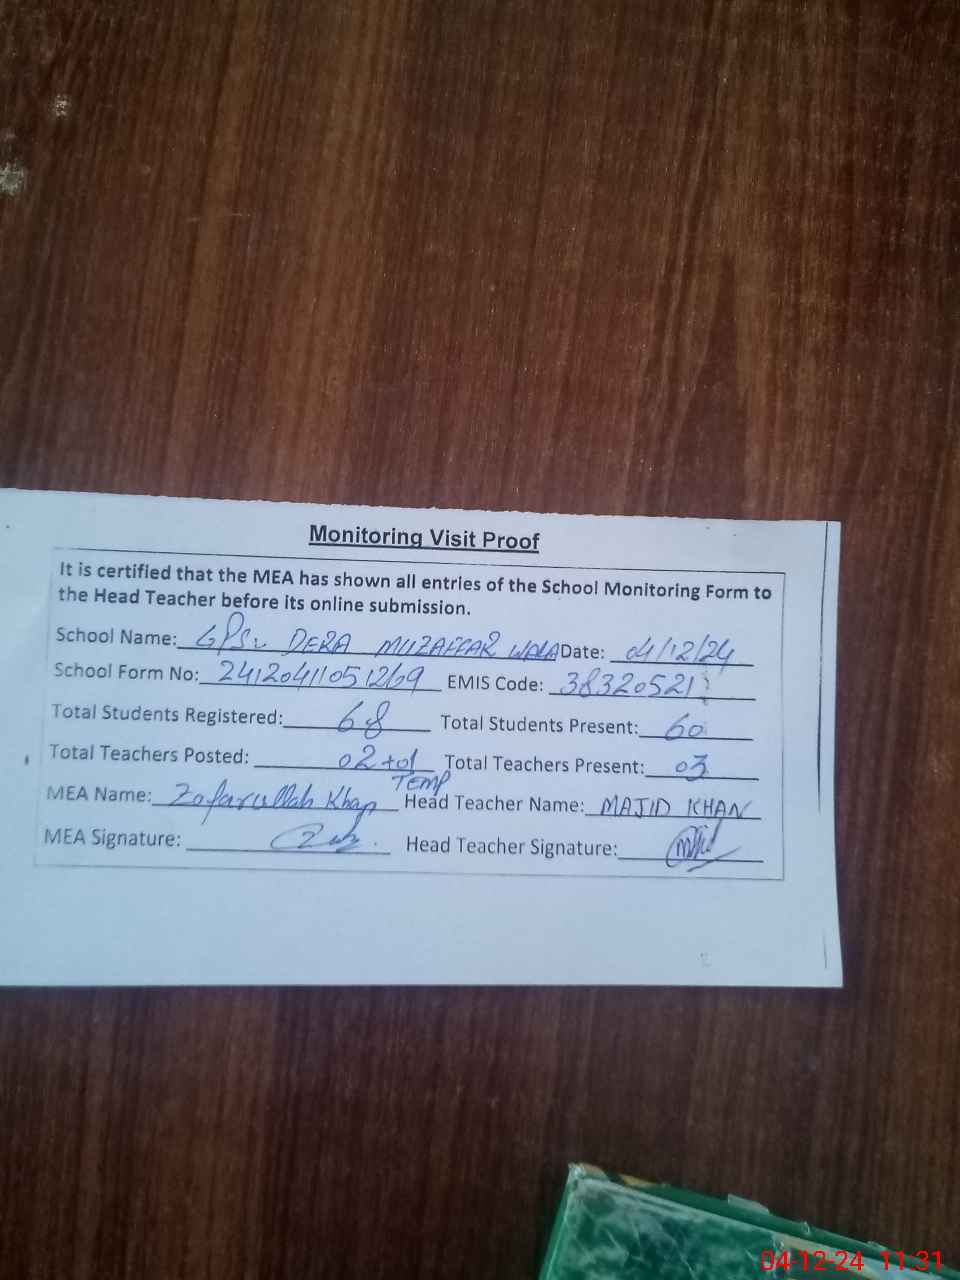 Monitoring Visit Proof
It is certified that the MEA has shown all entries of the School Monitoring Form to
the Head Teacher before its online submission.
School Name: GPS. DERA MUZAFFAR WALA Date: 04/12/24
School Form No: 24120411051269 EMIS Code: 38320521
Total Students Registered: 68 Total Students Present: 60
Total Teachers Posted: 02+01 Total Teachers Present: 03
TEMP
MEA Name: Zafarullah Khan Head Teacher Name: MAJID KHAN
MEA Signature: Head Teacher Signature:
04-12-24 11:31